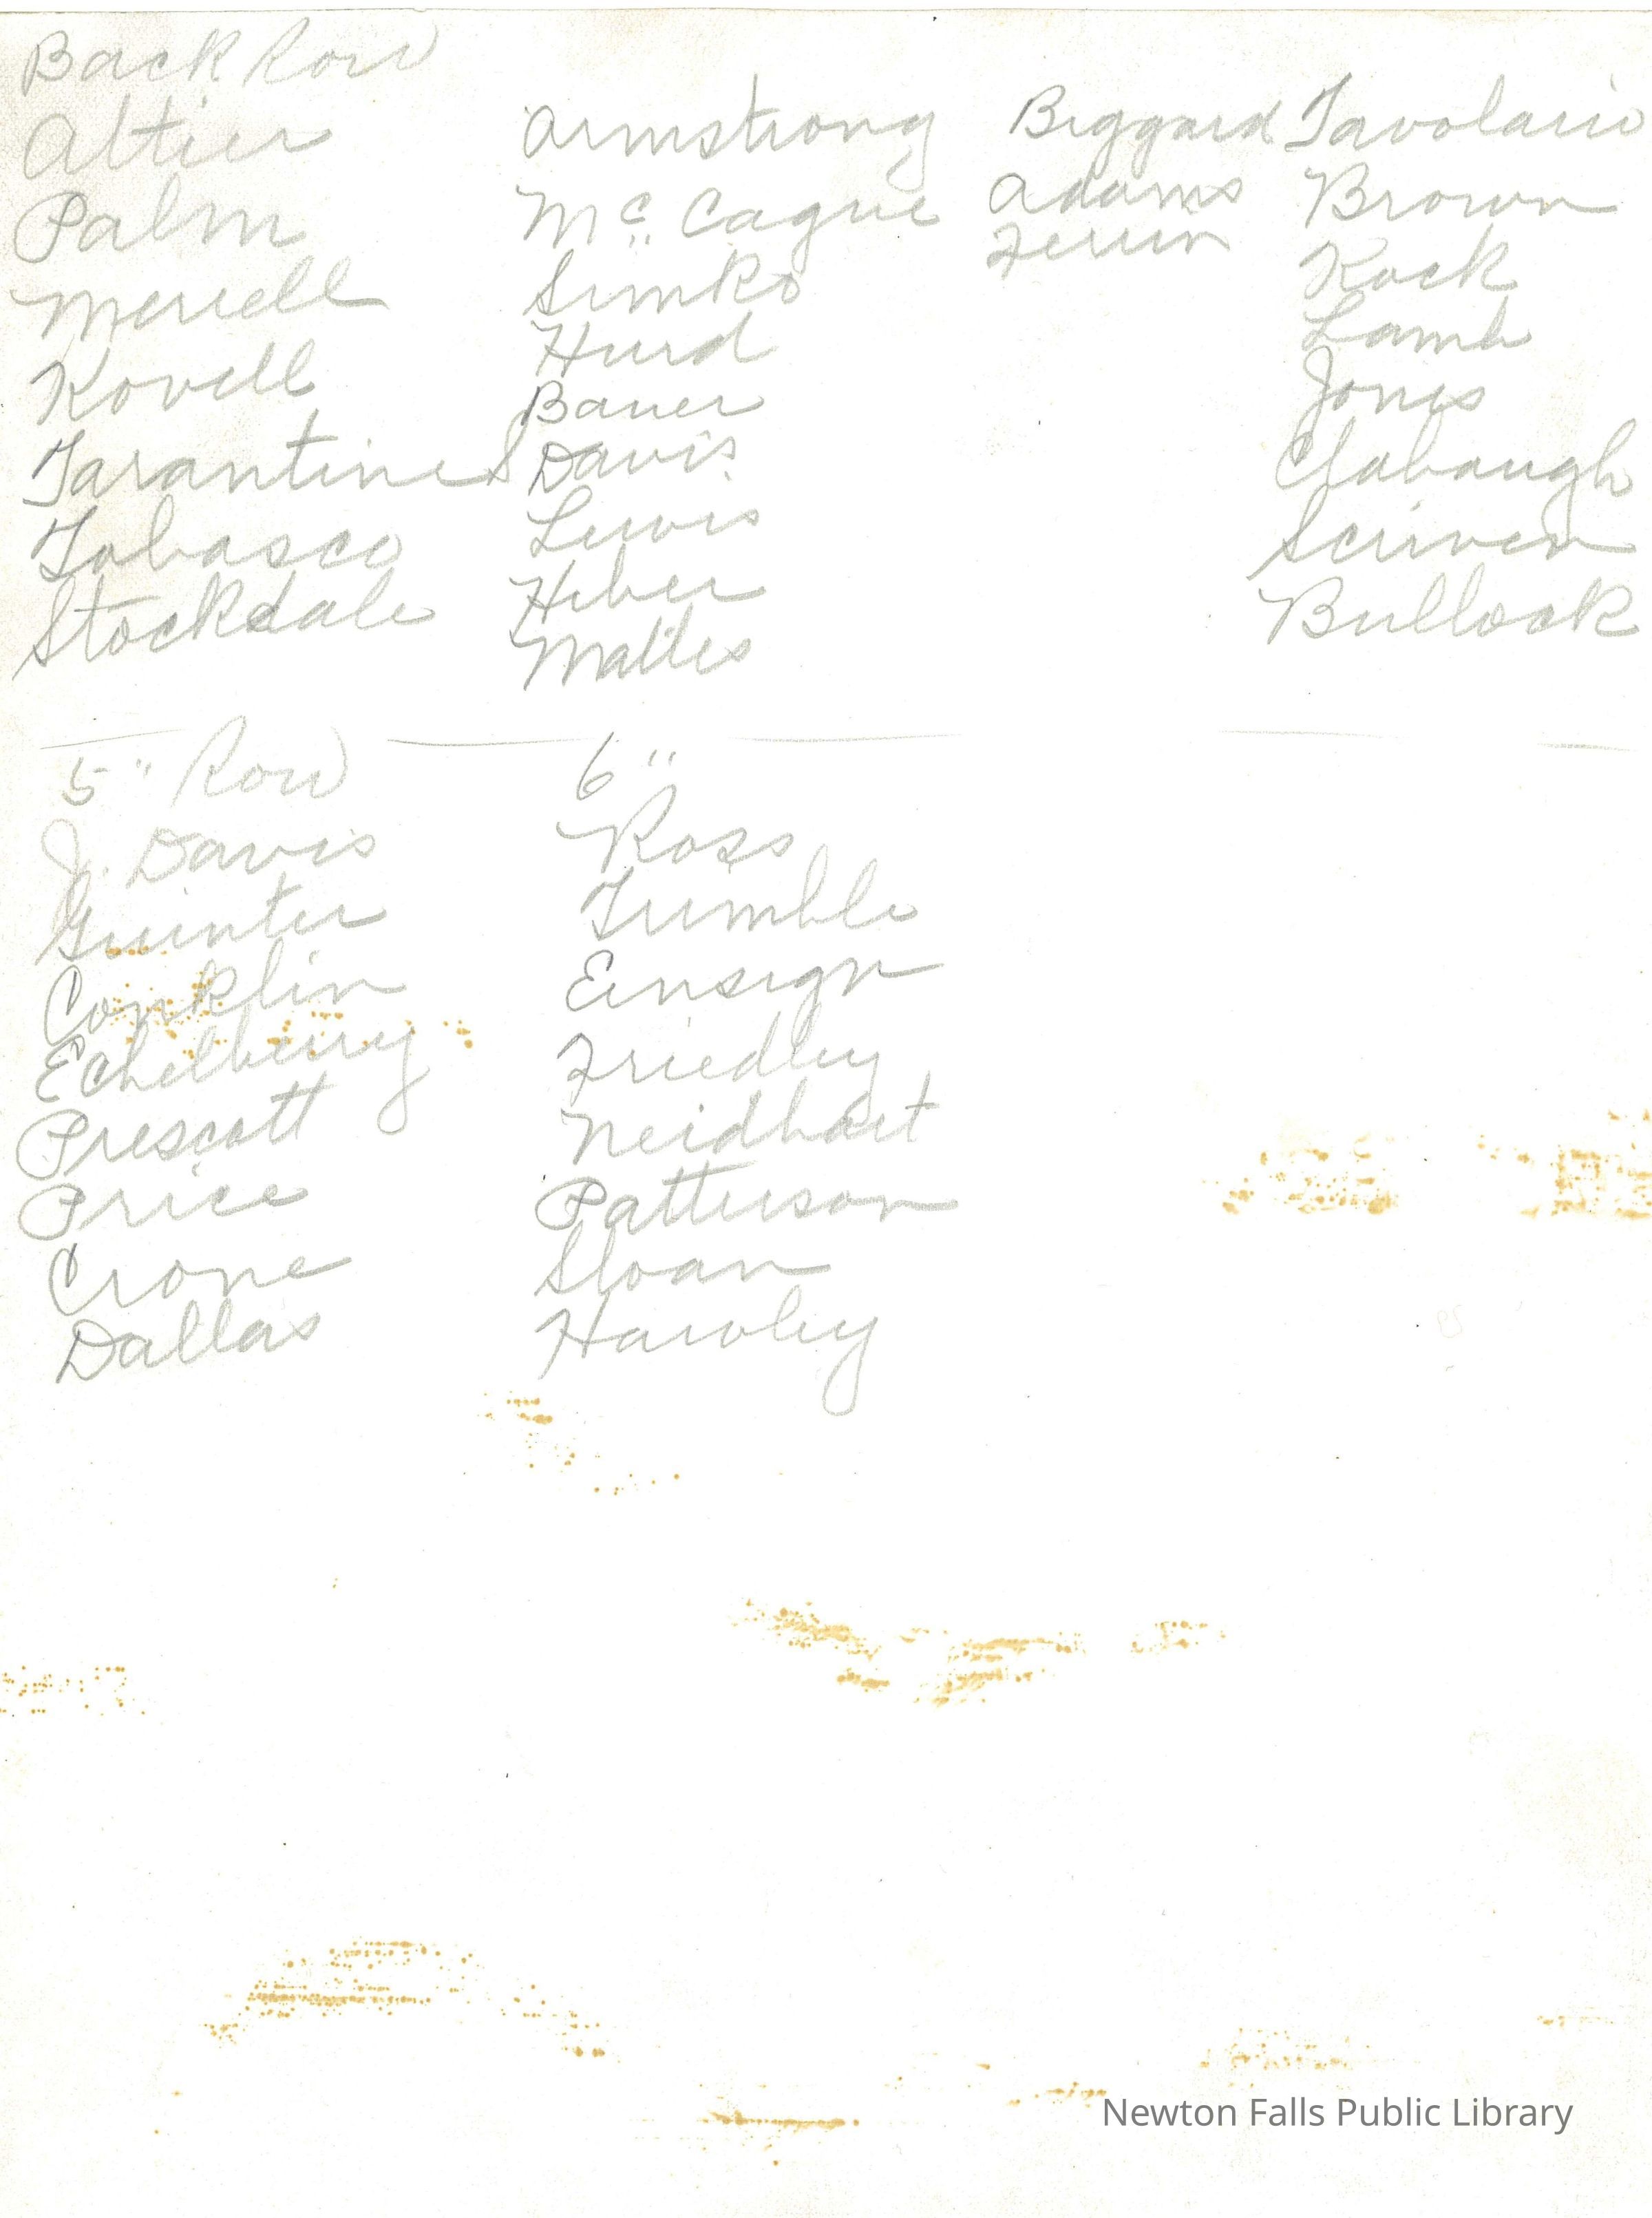 Back Row
Altier
Palm
Merrell
Kovell
Tarantine
Tobasco
Stockdale
Armstrong
Mc Cague
Simko
Hurd
Bauer
Davis
Lewis
Heber
Mattes
Biggard
Adams
Ferrin
Tavolario
Brown
Rock
Lamb
Jones
Clabaugh
Scriven
Bullock
5" Row
J. Davis
Guinter
Conklin
Echelberry
Prescott
Price
Crone
Dallas
6"
Ross
Trimble
Ensign
Friedley
Neidhart
Patterson
Sloan
Hawley
Newton Falls Public Library